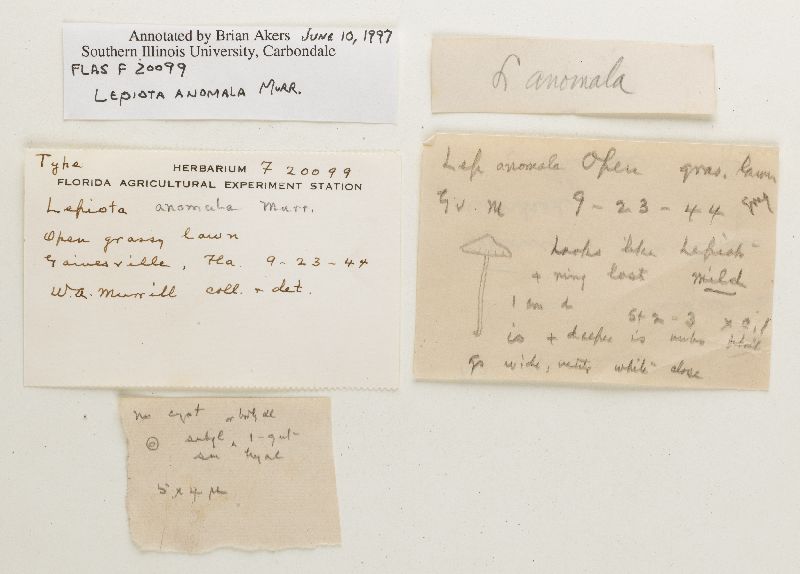 Annotated by Brian Akers June 10, 1997
Southern Illinois University, Carbondale
FLAS F 20099
LEPIOTA ANOMALA MURR.
L anomala
Type
HERBARIUM F 20099
FLORIDA AGRICULTURAL EXPERIMENT STATION
Lepiota anomala Murr.
Open grassy lawn
Gainesville, Fla. 9-23-44
W.A. Murrill coll. + det.
Lep anomala Open gras. lawn
Gv. M 9-23-44
Looks like Lepiota
+ ring lost mild
1 cm d
is + deeper is umbo
white close
no cyst
subgl 1-gut
sm hyal
5 x 4 µ